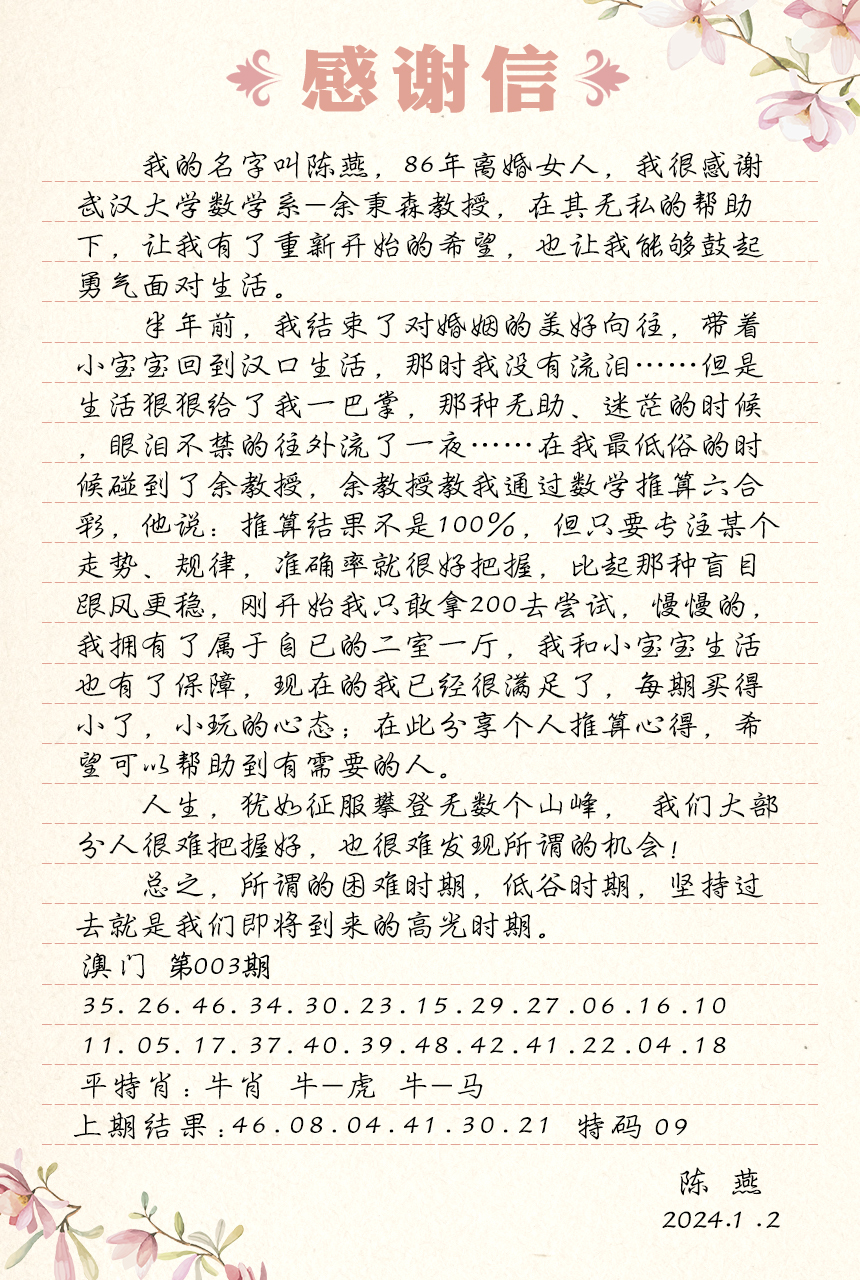 感谢信
我的名字叫陈燕，86年离婚女人，我很感谢
武汉大学数学系—余秉森教授，在其无私的帮助
下，让我有了重新开始的希望，也让我能够鼓起
勇气面对生活。
半年前，我结束了对婚姻的美好向往，带着
小宝宝回到汉口生活，那时我没有流泪……但是
生活狠狠给了我一巴掌，那种无助、迷茫的时候
，眼泪不禁的往外流了一夜……在我最低俗的时
候碰到了余教授，余教授教我通过数学推算六合
彩，他说：推算结果不是100%，但只要专注某个
走势、规律，准确率就很好把握，比起那种盲目
跟风更稳，刚开始我只敢拿200去尝试，慢慢的，
我拥有了属于自已的二室一厅，我和小宝宝生活
也有了保障，现在的我已经很满足了，每期买得
小了，小玩的心态；在此分享个人推算心得，希
望可以帮助到有需要的人。
人生，犹如征服攀登无数个山峰， 我们大部
分人很难把握好，也很难发现所谓的机会！
总之，所谓的困难时期，低谷时期，坚持过
去就是我们即将到来的高光时期。
澳门 第003期
35.26.46.34.30.23.15.29.27.06.16.10
11.05.17.37.40.39.48.42.41.22.04.18
平特肖：牛肖 牛—虎 牛—马
上期结果：46.08.04.41.30.21 特码 09
陈 燕
2024.1.2